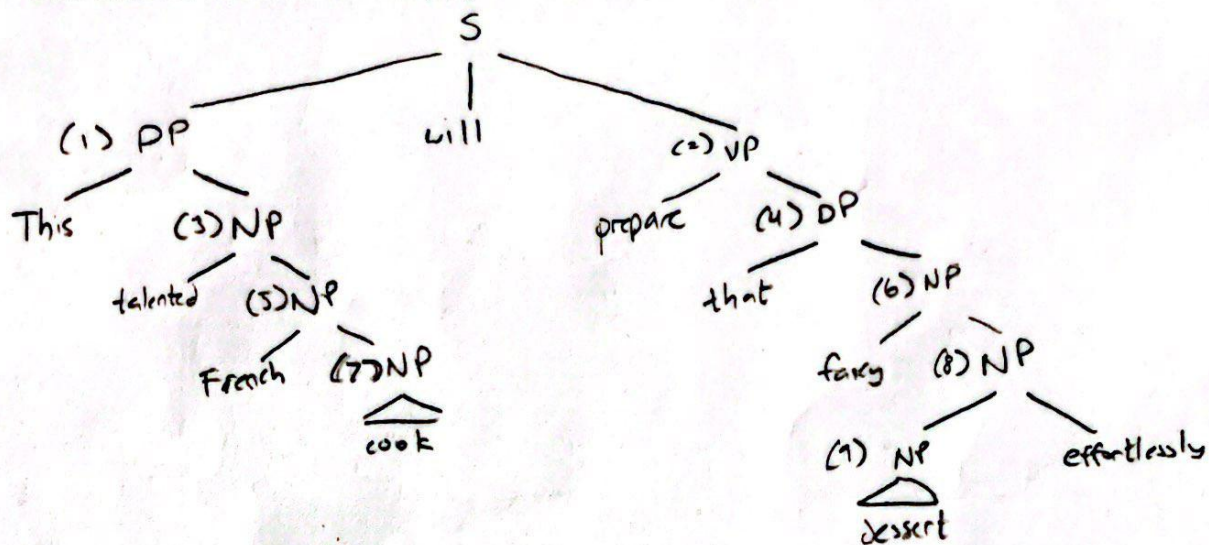 S
(1) DP will (2) VP
This (3) NP prepare (4) DP
talented (5) NP that (6) NP
French (7) NP fancy (8) NP
cook (9) NP effortlessly
dessert